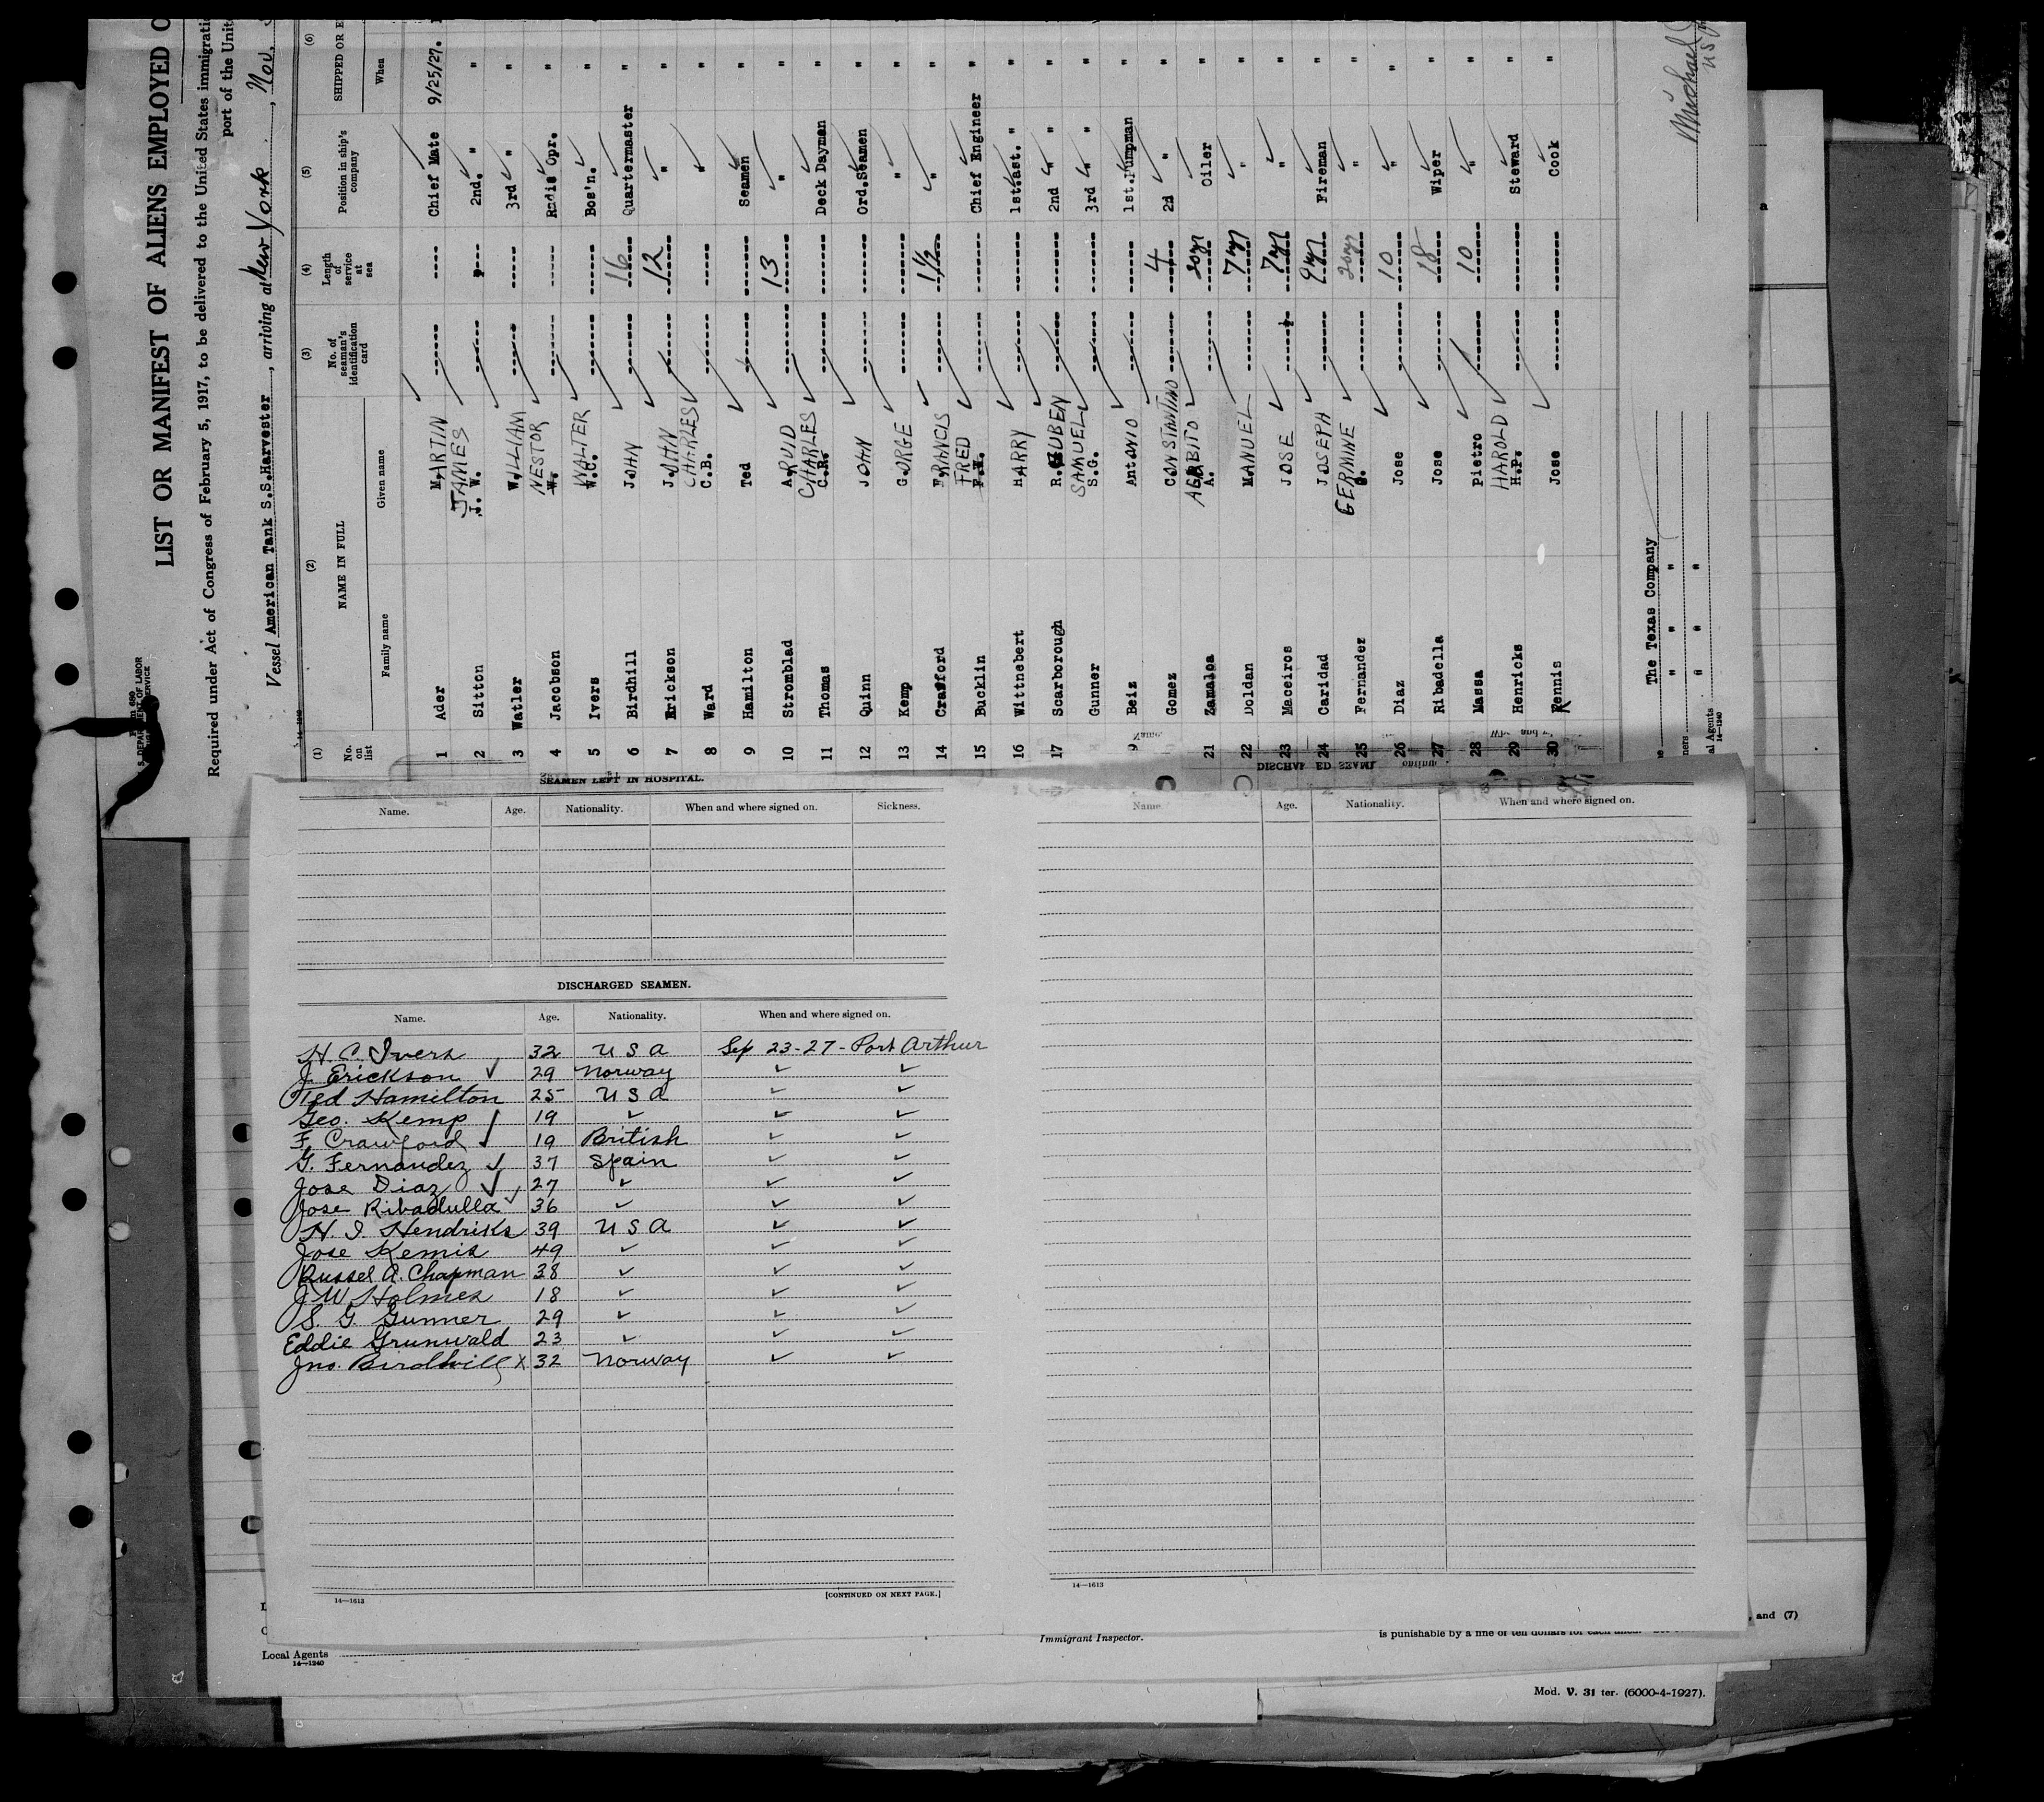 LIST OR MANIFEST OF ALIENS EMPLOYED O
Required under Act of Congress of February 5, 1917, to be delivered to the United States immigrati
port of the Unit
Vessel American Tank S.S. Harvester, arriving at New York, Nov.
(1) (2) (3) (4) (5) (6)
No. on list NAME IN FULL No. of seaman's identification card Length of service at sea Position in ship's company SHIPPED OR E
Family name Given name When
1 Ader MARTIN Chief Mate 9/25/27.
2 Sitton JAMES J. W. 2nd. " "
3 Watler WILLIAM 3rd " "
4 Jacobson NESTOR W. Radio Opr. "
5 Ivers WALTER W.C. Bos'n. "
6 Birdhill JOHN 16 Quartermaster "
7 Erickson JOHN 12 " "
8 Ward CHARLES C.B. " "
9 Hamilton Ted Seamen "
10 Stromblad ARVID 13 " "
11 Thomas CHARLES C.R. Deck Dayman "
12 Quinn JOHN Ord.Seamen "
13 Kemp GORGE " "
14 Crawford FRANCIS 1½ " "
15 Bucklin FRED Chief Engineer "
16 Wittnebert HARRY 1st.ast. " "
17 Scarborough R. RUBEN 2nd " "
Gunner SAMUEL S.G. 3rd " "
9 Beiz Antonio 1st.Pumpman "
Gomez CONSTANTINO 4 2d " "
21 Zamaloa AGABITO A. 20yr Oiler "
22 Doldan MANUEL 7yr " "
23 Maceiros JOSE 7yr " "
24 Caridad JOSEPH 9yr Fireman "
25 Fernandez GERMINE 20yr " "
26 Diaz Jose 10 " "
27 Ribadella Jose 18 Wiper "
28 Massa Pietro 10 " "
29 Henricks HAROLD H.P. Steward "
30 Kennis Jose Cook "
The Texas Company
" " "
al Agents " " "
14-1240
Michael
SEAMEN LEFT IN HOSPITAL.
Name. Age. Nationality. When and where signed on. Sickness.
DISCHARGED SEAMEN.
Name. Age. Nationality. When and where signed on.
H. C. Ivers 32 U S A Sep 23-27- Port Arthur
J. Erickson ✓ 29 Norway ✓ ✓
Ted Hamilton 25 U S A ✓ ✓
Geo. Kemp ✓ 19 ✓ ✓ ✓
F. Crawford ✓ 19 British ✓ ✓
G. Fernandez ✓ 37 Spain ✓ ✓
Jose Diaz ✓ 27 ✓ ✓ ✓
Jose Ribadulla ✓ 36 ✓ ✓ ✓
H. I. Hendriks 39 U S A ✓ ✓
Jose Kemis 49 ✓ ✓ ✓
Russel A. Chapman 38 ✓ ✓ ✓
J W Holmes 18 ✓ ✓ ✓
S. G. Gunner 29 ✓ ✓ ✓
Eddie Grunwald 23 ✓ ✓ ✓
Jno. Birdhill X 32 Norway ✓ ✓
14—1613 [CONTINUED ON NEXT PAGE.]
Name Age. Nationality. When and where signed on.
14—1613
Local Agents
14—1240
Immigrant Inspector.
, and (7)
is punishable by a fine of ten dollars for each alien.
Mod. V. 31 ter. (6000-4-1927).